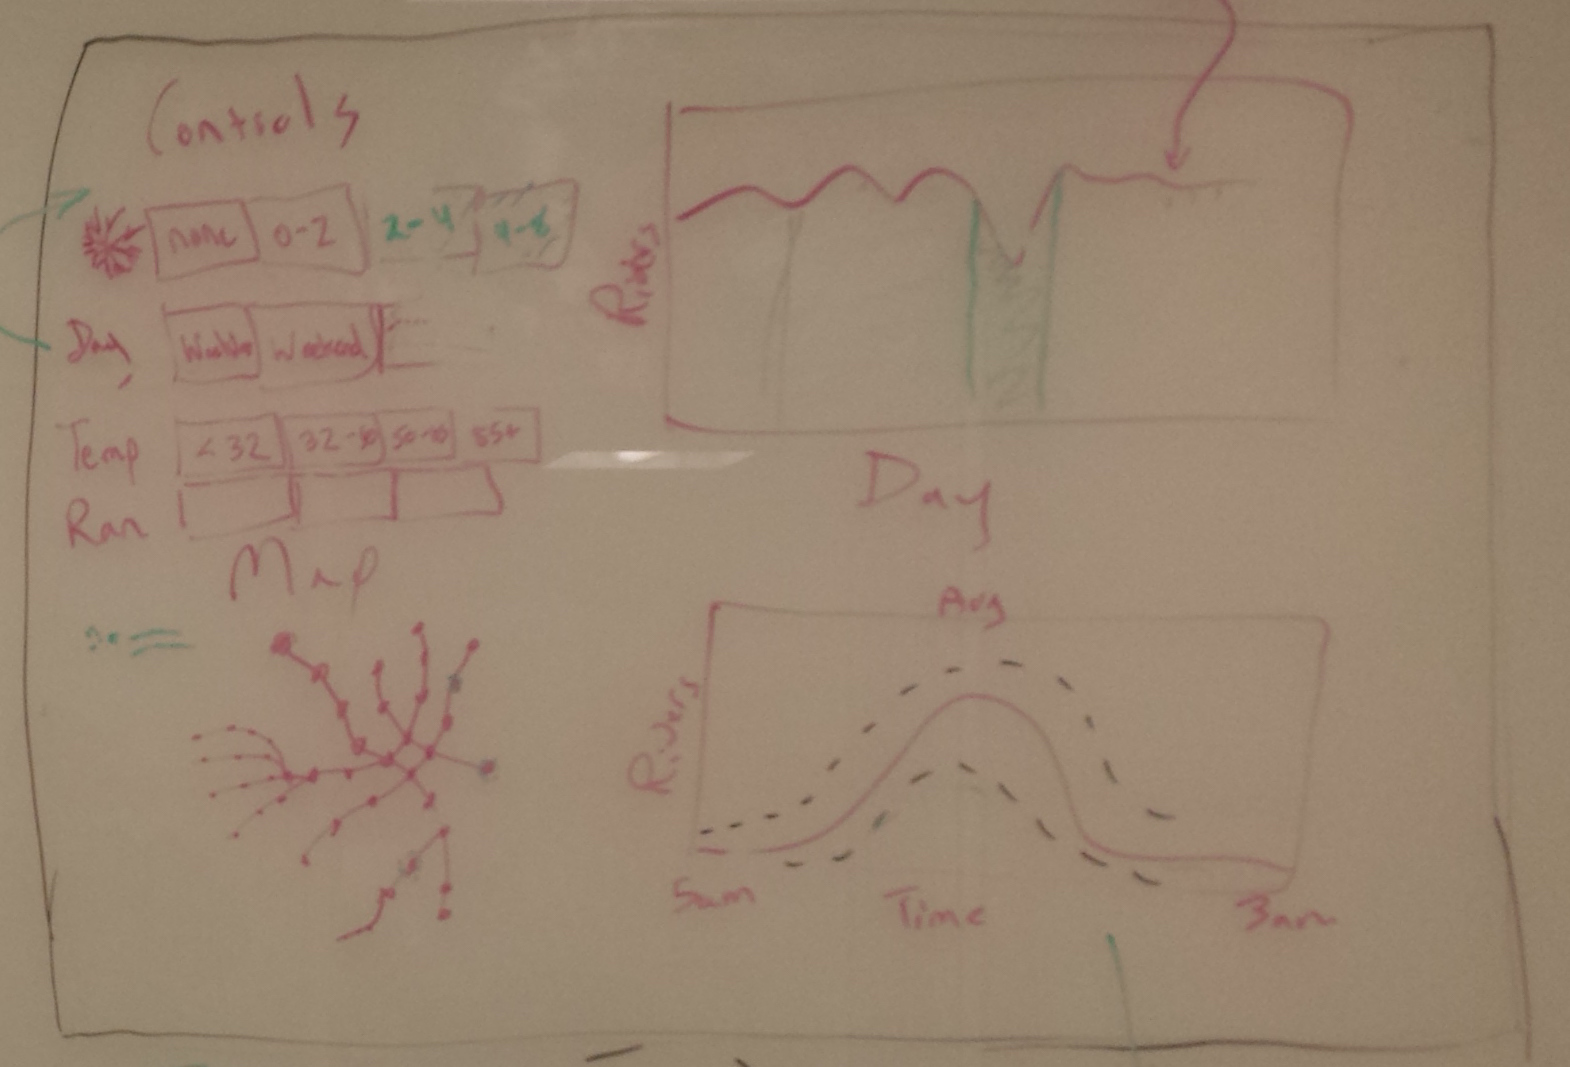 Controls
none 0-2 2-4 4-8
Day Weekend
Temp <32 32-50 50- 85+
Ran
Map
Riders
Day
Avg
Riders
5am Time 3am